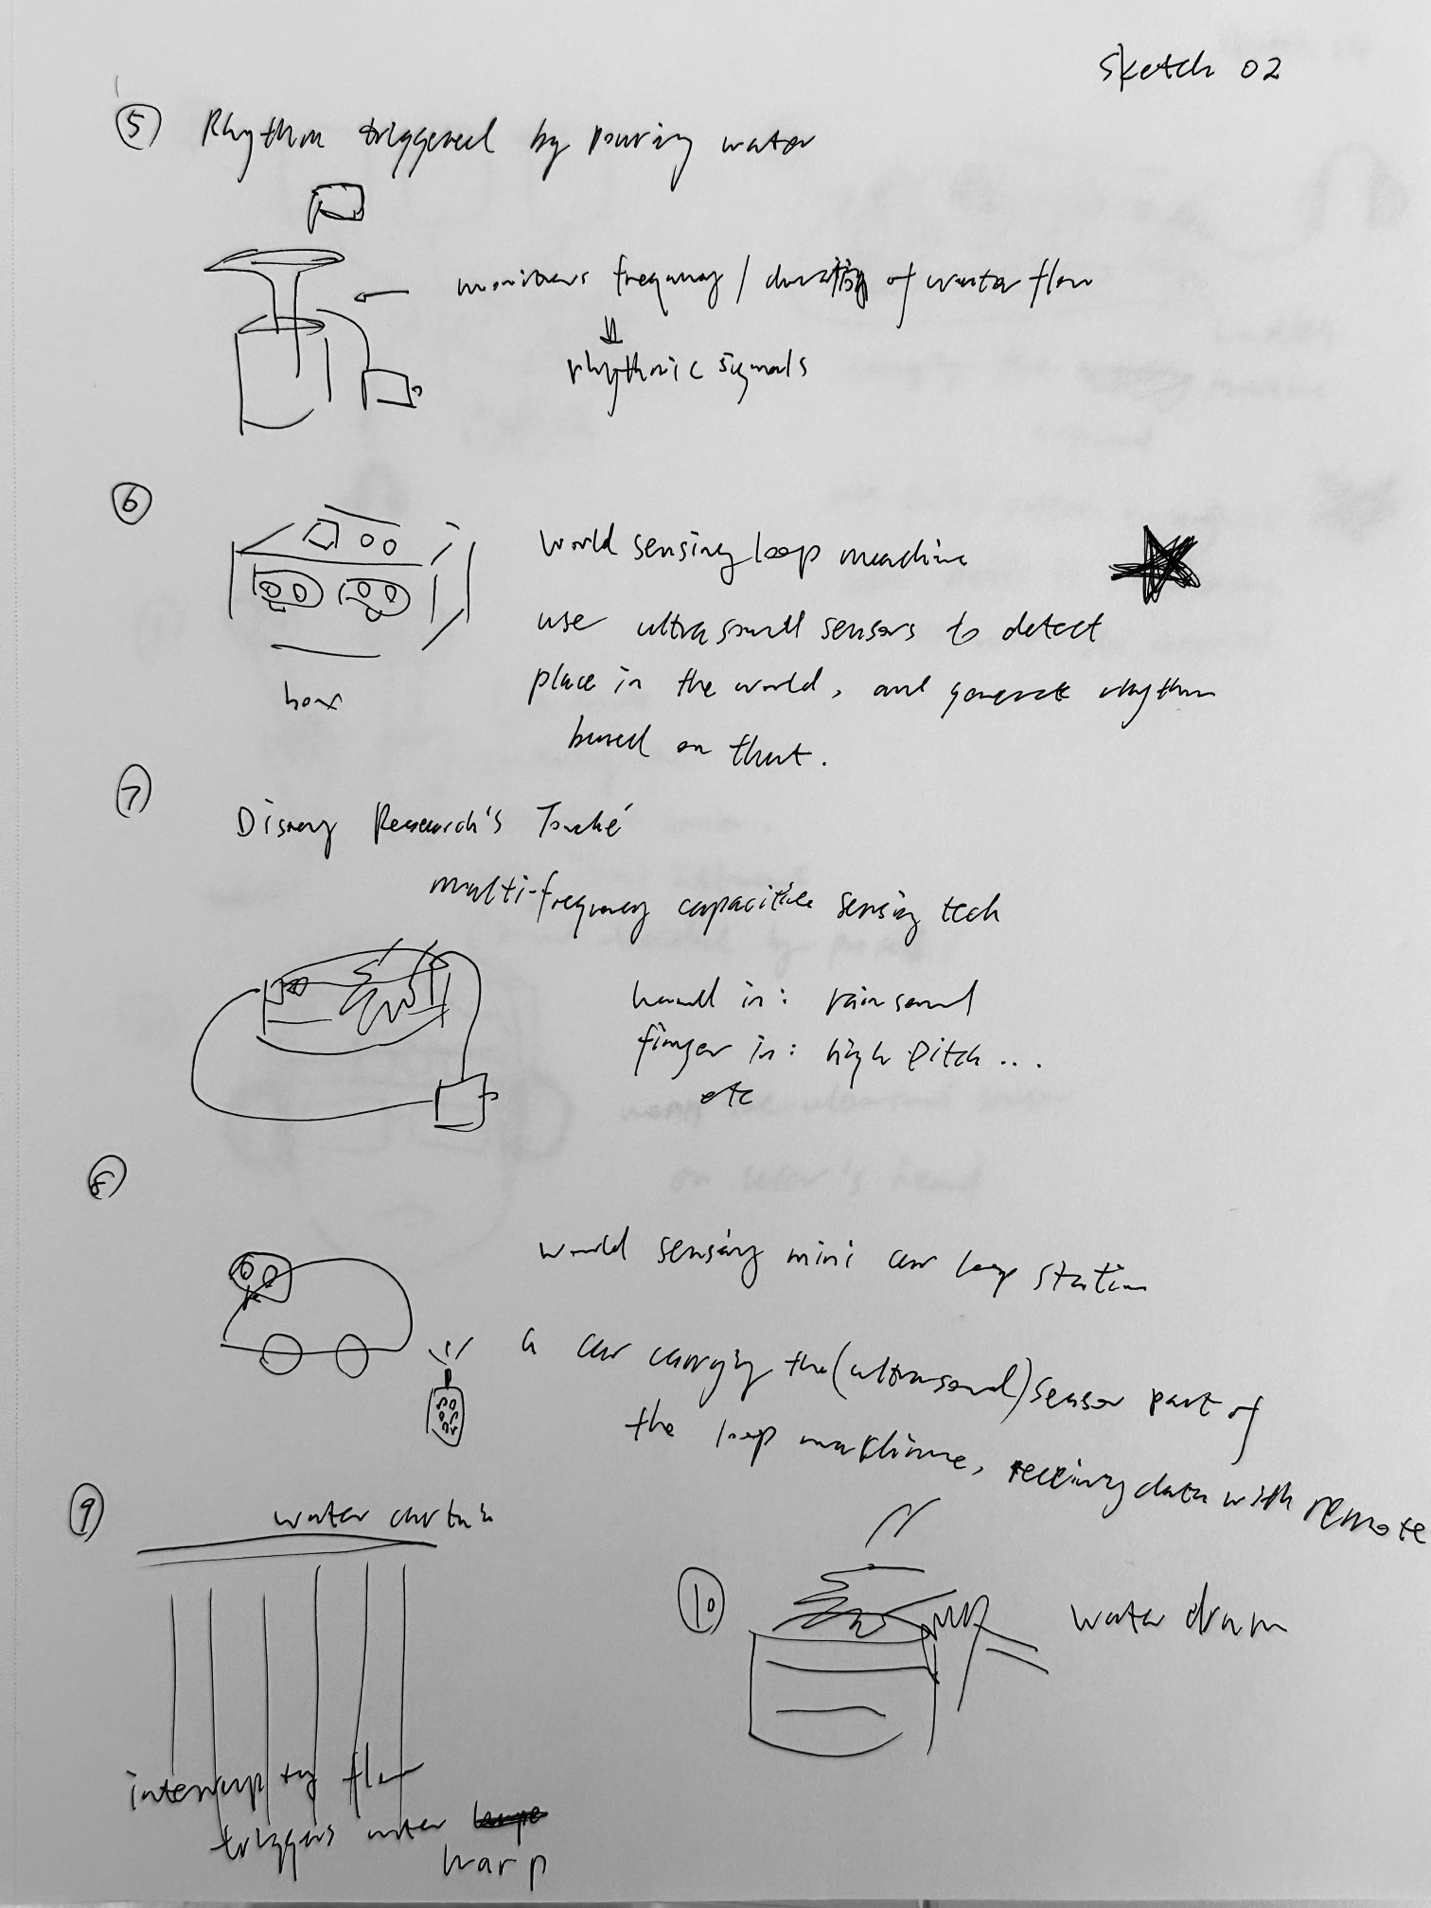 Sketch 02
⑤ Rhythm triggered by pouring water
monitors frequency / duration of water flow
rhythmic signals
⑥
World sensing loop machine
use ultrasound sensors to detect
place in the world, and generate rhythm
based on that.
box
⑦
Disney Research's Touché
multi-frequency capacitive sensing tech
hand in: rain sound
finger in: high pitch ...
etc
⑧
World sensing mini car loop station
a car carrying the (ultrasound) sensor part of
the loop machine, receiving data with remote
⑨
water curtain
interrupting flow
triggers water
harp
⑩
water drum